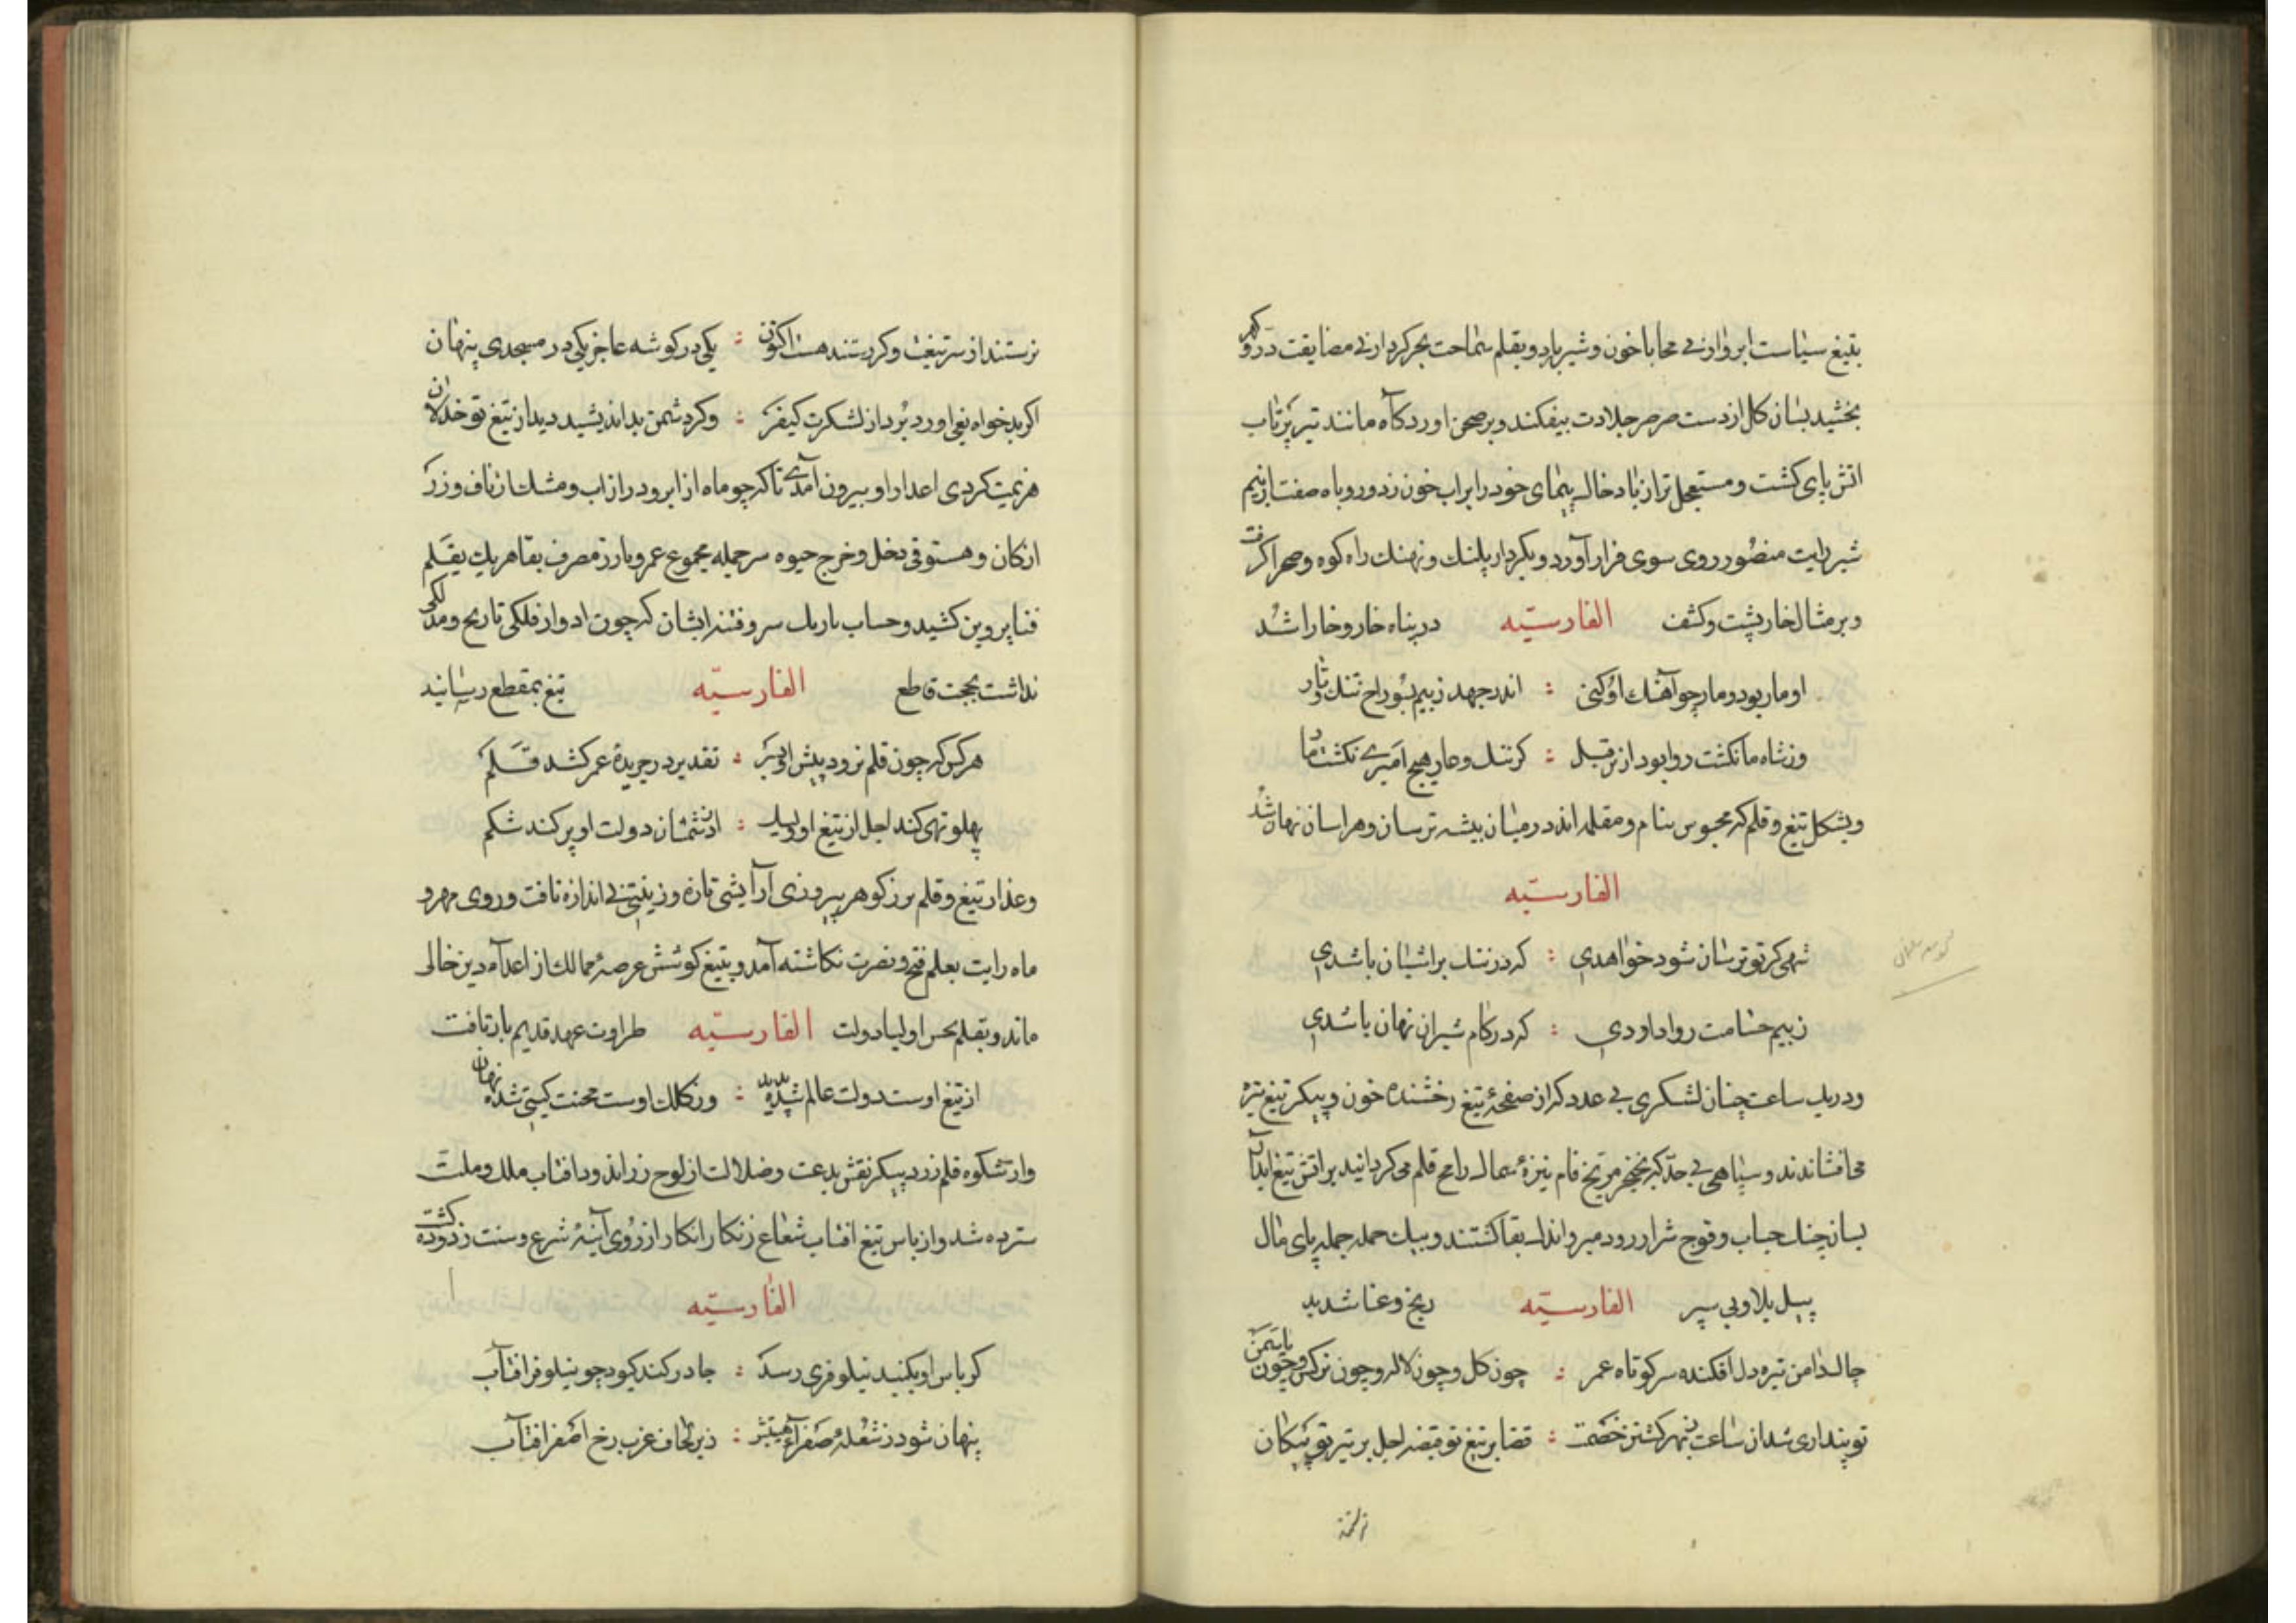 بتیغ سیاست ابروار بی محابا خون و شیر بارد و بقلم سماحت بحر کردار بی مضایقت در و کهر
بخشید بسان کل از دست صرصر جلادت بیفکند و بر صحن آوردکاه مانند تیر پرتاب
اتش پای کشت و مستعجل تر از باد خاک پیمای خود را بر اب خون زد و روباه صفت از بیم
شیر رایت منصور روی سوی فرار آورد و بکردار پلنك و نهنك راه کوه و صحرا کرفت
و بر مثال خارپشت و کشف الفارسیّه در پناه خار و خارا شد
او مار بود و مار چو آهنك او کنی : اندر جهد ز بیم بسوراخ تنك و تار
ور شاه ما نکشت روا بود از قبل : کز ننك و عار هیچ امیری نکشت مار
و بشکل تیغ و قلم که محبوس نیام و مقلمه اند در میان بیشه ترسان و هراسان نهان شد
الفارسیّه
تهی کر تو ترسان شود خواهدی : که در سنك بر اشیان باشدی
ز بیم حسامت روا داودی : که در کام شیران نهان باشدی
و در یك ساعت چنان لشکری بی عدد که از صفحهٔ تیغ رخشنده خون و پیکر تیغ تیز
می افشاندند و سپاهی بی حدّ که بخنجر مریخ فام نیزهٔ سماك رامح قلم می کردانید بر اتش تیغ ابدار
بسان خیل حباب و فوج شرار زود میر و اندك بقا کشتند و بیك حمله جمله پای مال
پیل بلا و پی سپر الفارسیّه رنج و عنا شدند
چاك دامن تیره دل افکنده سر کوتاه عمر : چون کل و چون لاله و چون نرکس و چون یاسمن
تو پنداری شد از ساعت بهر کشتن خصمت : قضا بر تیغ تو قبضه اجل بر تیر تو پیکان
نرستند از سر تیغت و کر رستند هست اکنون : یکی در کوشه عاجز یکی در مسجدی پنهان
اکر بدخواه بغی اورد برد از لشکرت کیفر : وکر دشمن بد اندیشید دید از تیغ تو خذلان
هزیمت کردی اعدا را و بیرون آمدی تا که چو ماه از ابر و در از اب و مشك از ناف و زر
از کان و مستوفی دخل و خرج حیوه سر جمله مجموع عمر و بارز مصرف بقا هر یك بقلم
فنا پروین کشید و حساب باریك سر و فتنه ایشان که چون ادوار فلکی تاریخ و مد ملکی
نداشت بحجت قاطع الفارسیّه تیغ بمقطع رسانید
هر کس که چون قلم نرود پیش او بسر : تقدیر در جریدهٔ عمر کشد قلم
پهلو تهی کند اجل از تیغ او ولیك : از دشمنان دولت او پر کند شکم
و عذار تیغ و قلم بر ز کوهر پیروزی آرایشی تازه و زینتی بی اندازه یافت و روی مهر و
ماه رایت بعلم فتح و نصرت نکاشته آمد و بتیغ کوشش عرصهٔ ممالك از اعداء دین خالی
ماند و بقلم بحس اولیا دولت الفارسیّه طراوت عهد قدیم باز یافت
از تیغ اوست دولت عالم شده پدید : وز کلك اوست محنت کیتی شده نهان
و از شکوه قلم زرد پیکر نقش بدعت و ضلالت از لوح زر اندود افتاب ملك و ملت
سترده شد و از باس تیغ افتاب شعاع زنکار انکار از روی آینهٔ شرع و سنت زدوده کشت
الفارسیّه
کر باس او بکنبد نیلوفری رسد : چادر کند کبود چو نیلوفر افتاب
پنهان شود ز شعلهٔ صفرآء هیبتش : زیر لحاف غرب رخ اصفر افتاب